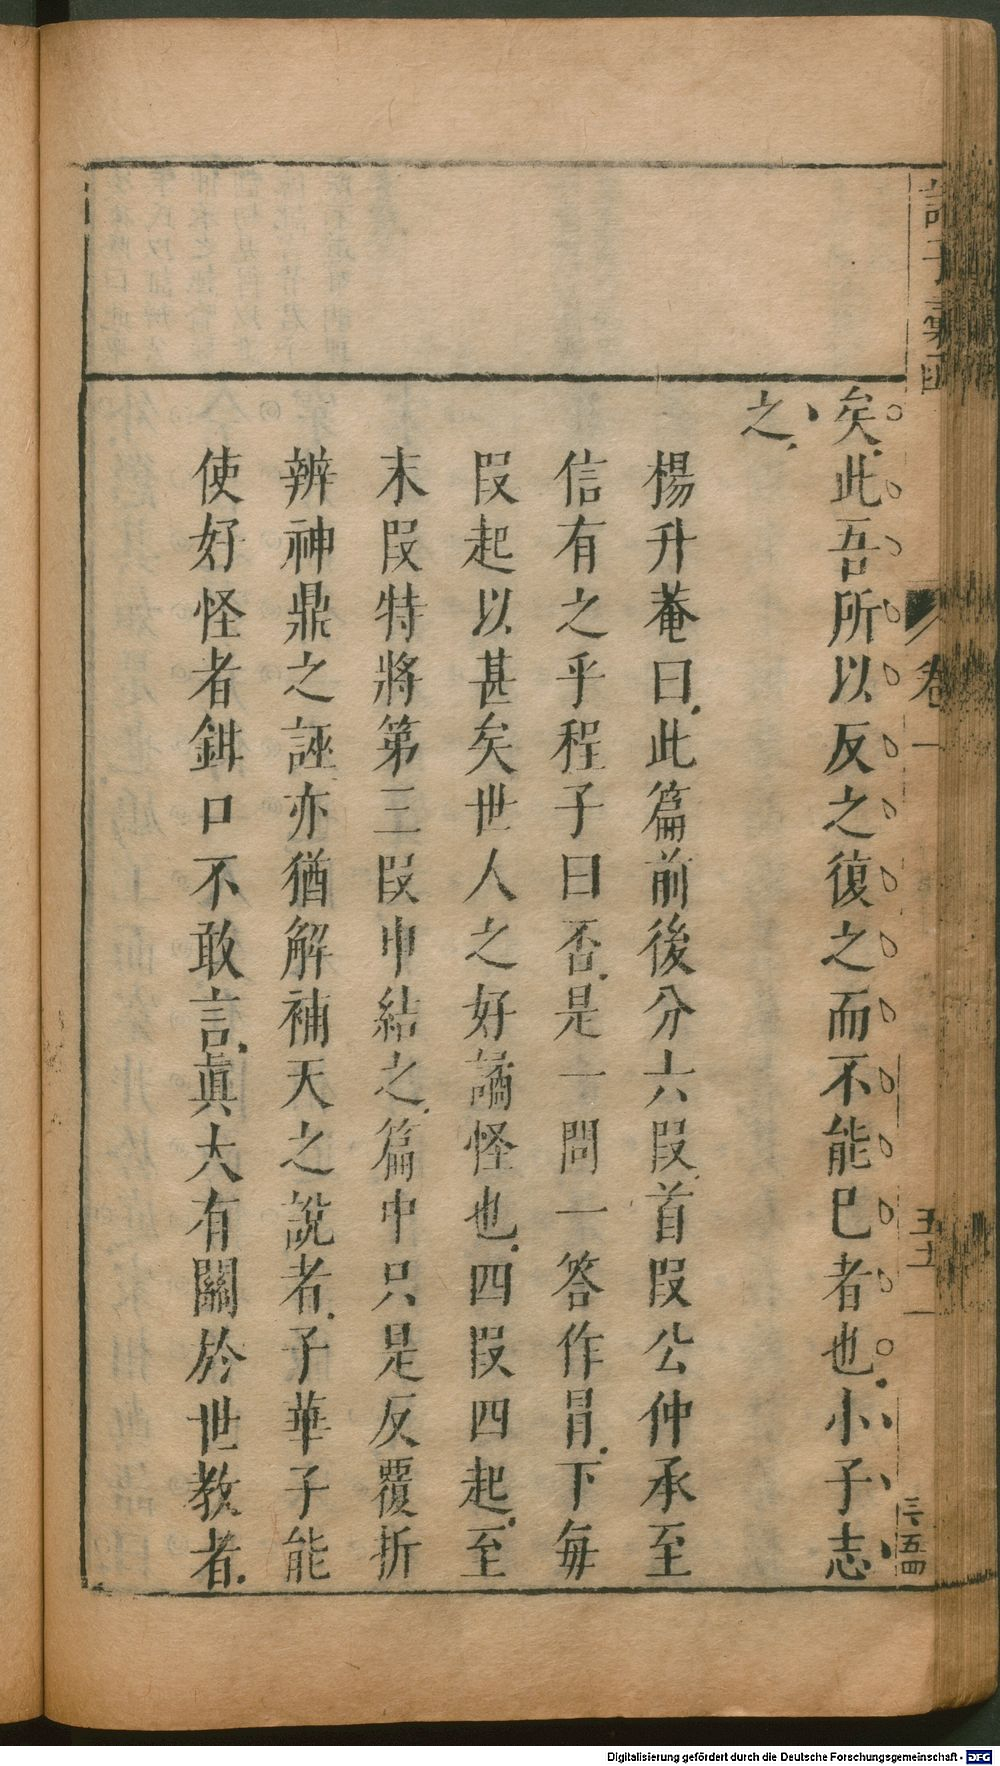 矣此吾所以反之復之而不能巳者也小子志
之
楊升菴曰此篇前後分六叚首叚公仲承至
信有之乎程子曰否是一問一答作冒下每
叚起以甚矣世人之好譎怪也四叚四起至
末叚特將第三叚申結之篇中只是反覆折
辨神鼎之誣亦猶解補天之說者子華子能
使好怪者鉗口不敢言眞大有關於世教者
卷一
三五四
Digitalisierung gefördert durch die Deutsche Forschungsgemeinschaft - DFG